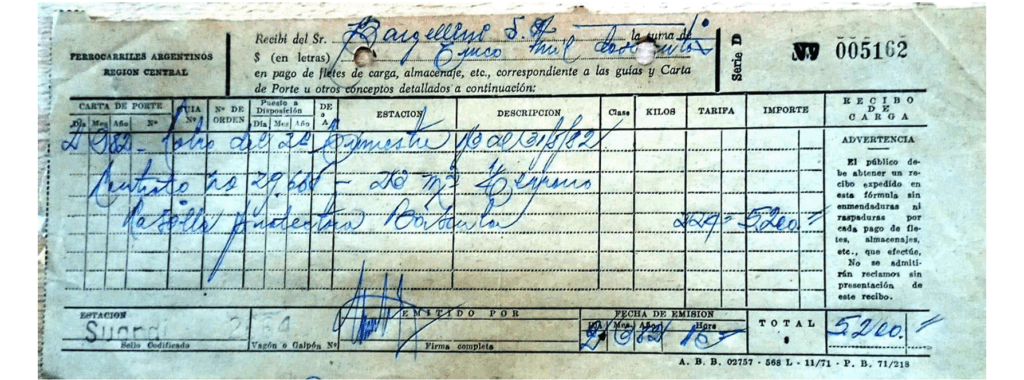 FERROCARRILES ARGENTINOS
REGION CENTRAL
Recibí del Sr. Bargellini S.A. la suma de
$ (en letras) Cinco mil doscientos
en pago de fletes de carga, almacenaje, etc., correspondiente a las guías y Carta
de Porte u otros conceptos detallados a continuación:
Serie D
Nº 005162
CARTA DE PORTE
Día Mes Año Nº
GUIA Nº
Nº DE ORDEN
Puesto a Disposición
Día Mes Año
DE A
ESTACIÓN
DESCRIPCION
Clase
KILOS
TARIFA
IMPORTE
RECIBO DE CARGA
2 982 - Cobro del 2º Bimestre al 31/8/82
Contrato no 29.668 - m² Terreno
Casilla protectora Báscula 5.200 "
ADVERTENCIA
El público de-
be abtener un re-
cibo expedido en
esta fórmula sin
enmendaduras ni
raspaduras por
cada pago de fle-
tes, almacenajes,
etc., que efectúe,
No se admiti-
rán reclamos sin
presentación de
este recibo.
ESTACION
Suardi
Sello Codificado
Vagón o Galpón Nº
EMITIDO POR
Firma completa
FECHA DE EMISION
DIA Mes Año Hora
2 982 16
TOTAL
5.200. "
A. B. B. 02757 - 568 L - 11/71 - P. B. 71/218